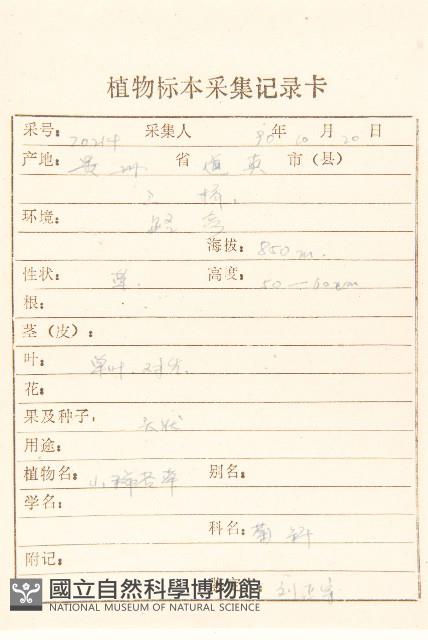 植物标本采集记录卡
采号: 70214 采集人 90年10月20日
产地: 贵州 省 道真 市(县)
三桥
环境: 路旁
海拔: 850m.
性状: 草. 高度: 50—60cm
根:
茎(皮):
叶: 单叶.对生.
花:
果及种子:
用途:
植物名: 小稀苔草 别名:
学名:
科名: 菊科
附记:
國立自然科學博物館
NATIONAL MUSEUM OF NATURAL SCIENCE
刘正宇